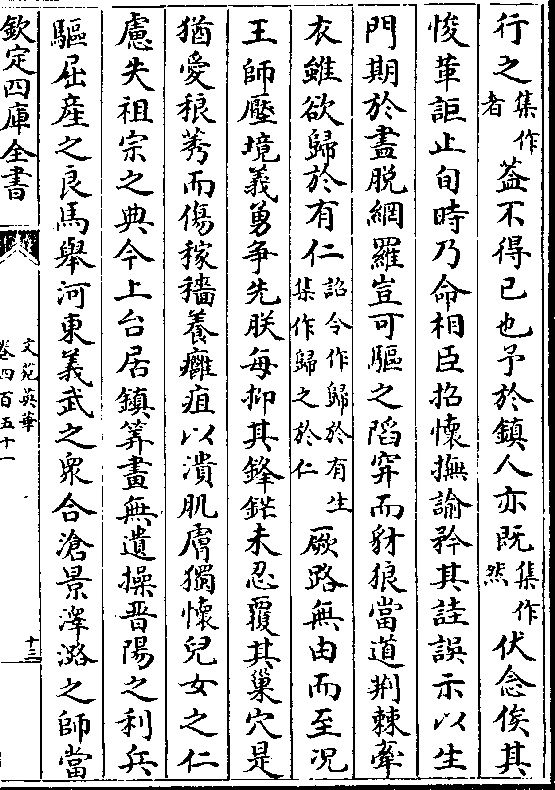 行之集作者葢不得已也予於鎮人亦既集作然伏念俟其
悛革詎止旬時乃命相臣招懷撫諭矜其詿誤示以生
門期於盡脫網羅豈可驅之陷穽而豺狼當道荆棘牽
衣雖欲歸於有仁詔令作歸於有生集作歸之於仁厥路無由而至况
王師壓境義勇争先朕每抑其鋒鋩未忍覆其巢穴是
猶愛稂莠而傷稼穡養癰疽以潰肌膚獨懷兒女之仁
慮失祖宗之典今上台居鎮筭畫無遺操晋陽之利兵
驅屈產之良馬舉河東義武之衆合滄景澤潞之師當
欽定四庫全書
文苑英華
卷四百五十一
十三